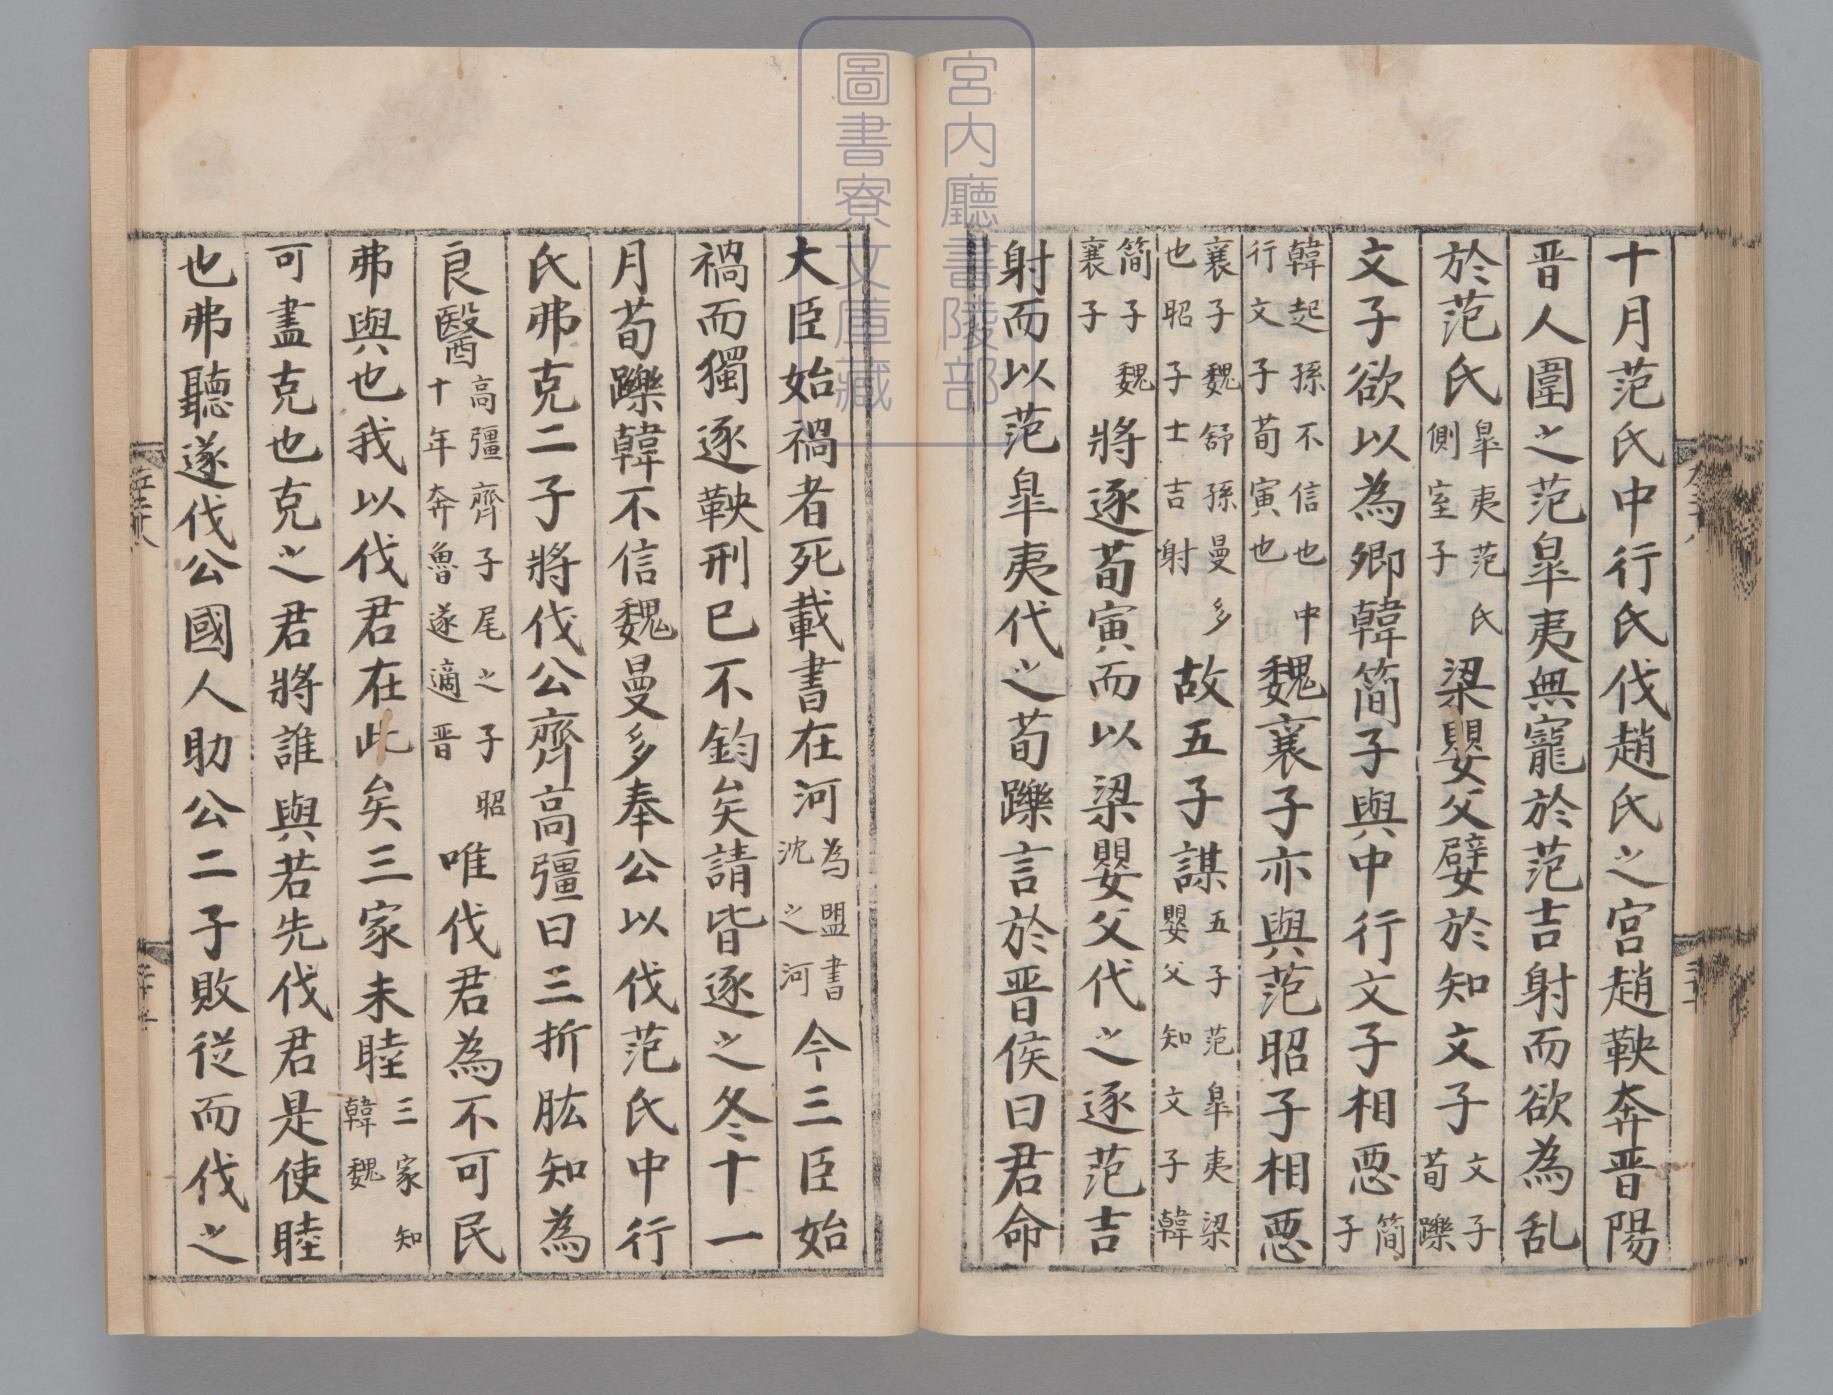 十月范氏中行氏伐趙氏之宮趙鞅奔晋陽
晋人圍之范皐夷無寵於范吉射而欲為乱
於范氏皐夷范氏側室子梁嬰父嬖於知文子文子荀躒
文子欲以為卿韓簡子與中行文子相惡簡子
韓起孫不信也中行文子荀寅也魏襄子亦與范昭子相惡
襄子魏舒孫曼多也昭子士吉射故五子謀五子范皐夷梁嬰父知文子韓
簡子魏襄子將逐荀寅而以梁嬰父代之逐范吉
射而以范皐夷代之荀躒言於晋侯曰君命
宮内廳書陵部
圖書寮文庫藏
大臣始禍者死載書在河為盟書沈之河今三臣始
禍而獨逐鞅刑已不鈞矣請皆逐之冬十一
月荀躒韓不信魏曼多奉公以伐范氏中行
氏弗克二子將伐公齊高彊曰三折肱知為
良醫高彊齊子尾之子昭十年奔魯遂適晋唯伐君為不可民
弗與也我以伐君在此矣三家未睦三家知韓魏
可盡克也克之君將誰與若先伐君是使睦
也弗聽遂伐公國人助公二子敗從而伐之